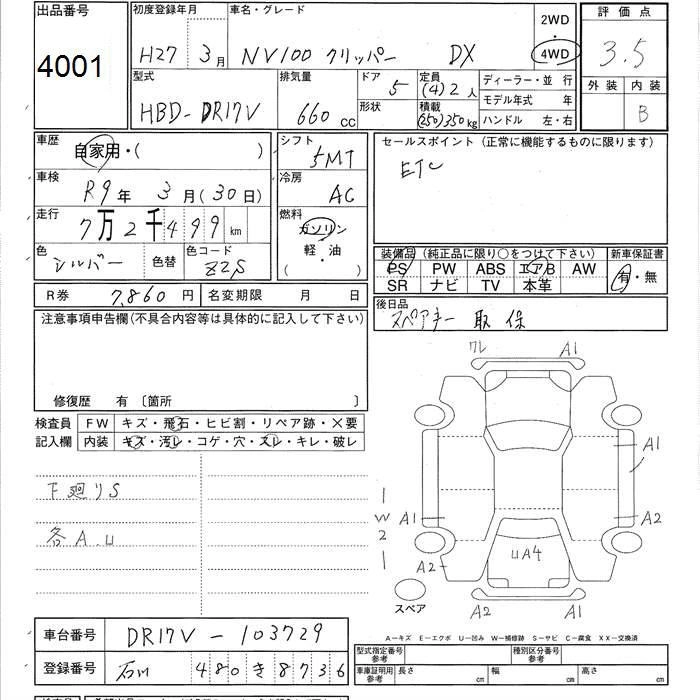 出品番号
4001
初度登録年月
H27 3月
車名・グレード
NV100 クリッパー DX
2WD
・
4WD
評価点
3.5
外装 内装
B
型式
HBD-DR17V
排気量
660 cc
ドア
5
形状
定員
(4)2人
積載
(250)350kg
ディーラー・並行
モデル年式 年
ハンドル 左・右
車歴
自家用・( )
車検
R9年 3月(30日)
走行
7万2千499km
色
シルバー
色替
色コード
Z2S
シフト
5MT
冷房
AC
燃料
ガソリン
軽・油
( )
セールスポイント(正常に機能するものに限ります)
ETC
装備品(純正品に限り○をつけて下さい)
PS PW ABS エアB AW
SR ナビ TV 本革
新車保証書
有・無
R券 7,860円
名変期限 月 日
後日品
スペアキー 取 保
注意事項申告欄(不具合内容等は具体的に記入して下さい)
修復歴 有〔箇所 〕
検査員
記入欄
FW キズ・飛石・ヒビ割・リペア跡・×要
内装 キズ・汚レ・コゲ・穴・スレ・キレ・破レ
下廻りS
各A.U
ワレ A1
A1
A1
W2
A2
UA4
A2
A2 A1
スペア
A-キズ E-エクボ U-凹み W-補修跡 S-サビ C-腐食 XX-交換済
車台番号 DR17V-103729
登録番号 石川 480 き 8736
型式指定番号
参考
種別区分番号
参考
車庫証明用
参考
長さ 幅 高さ